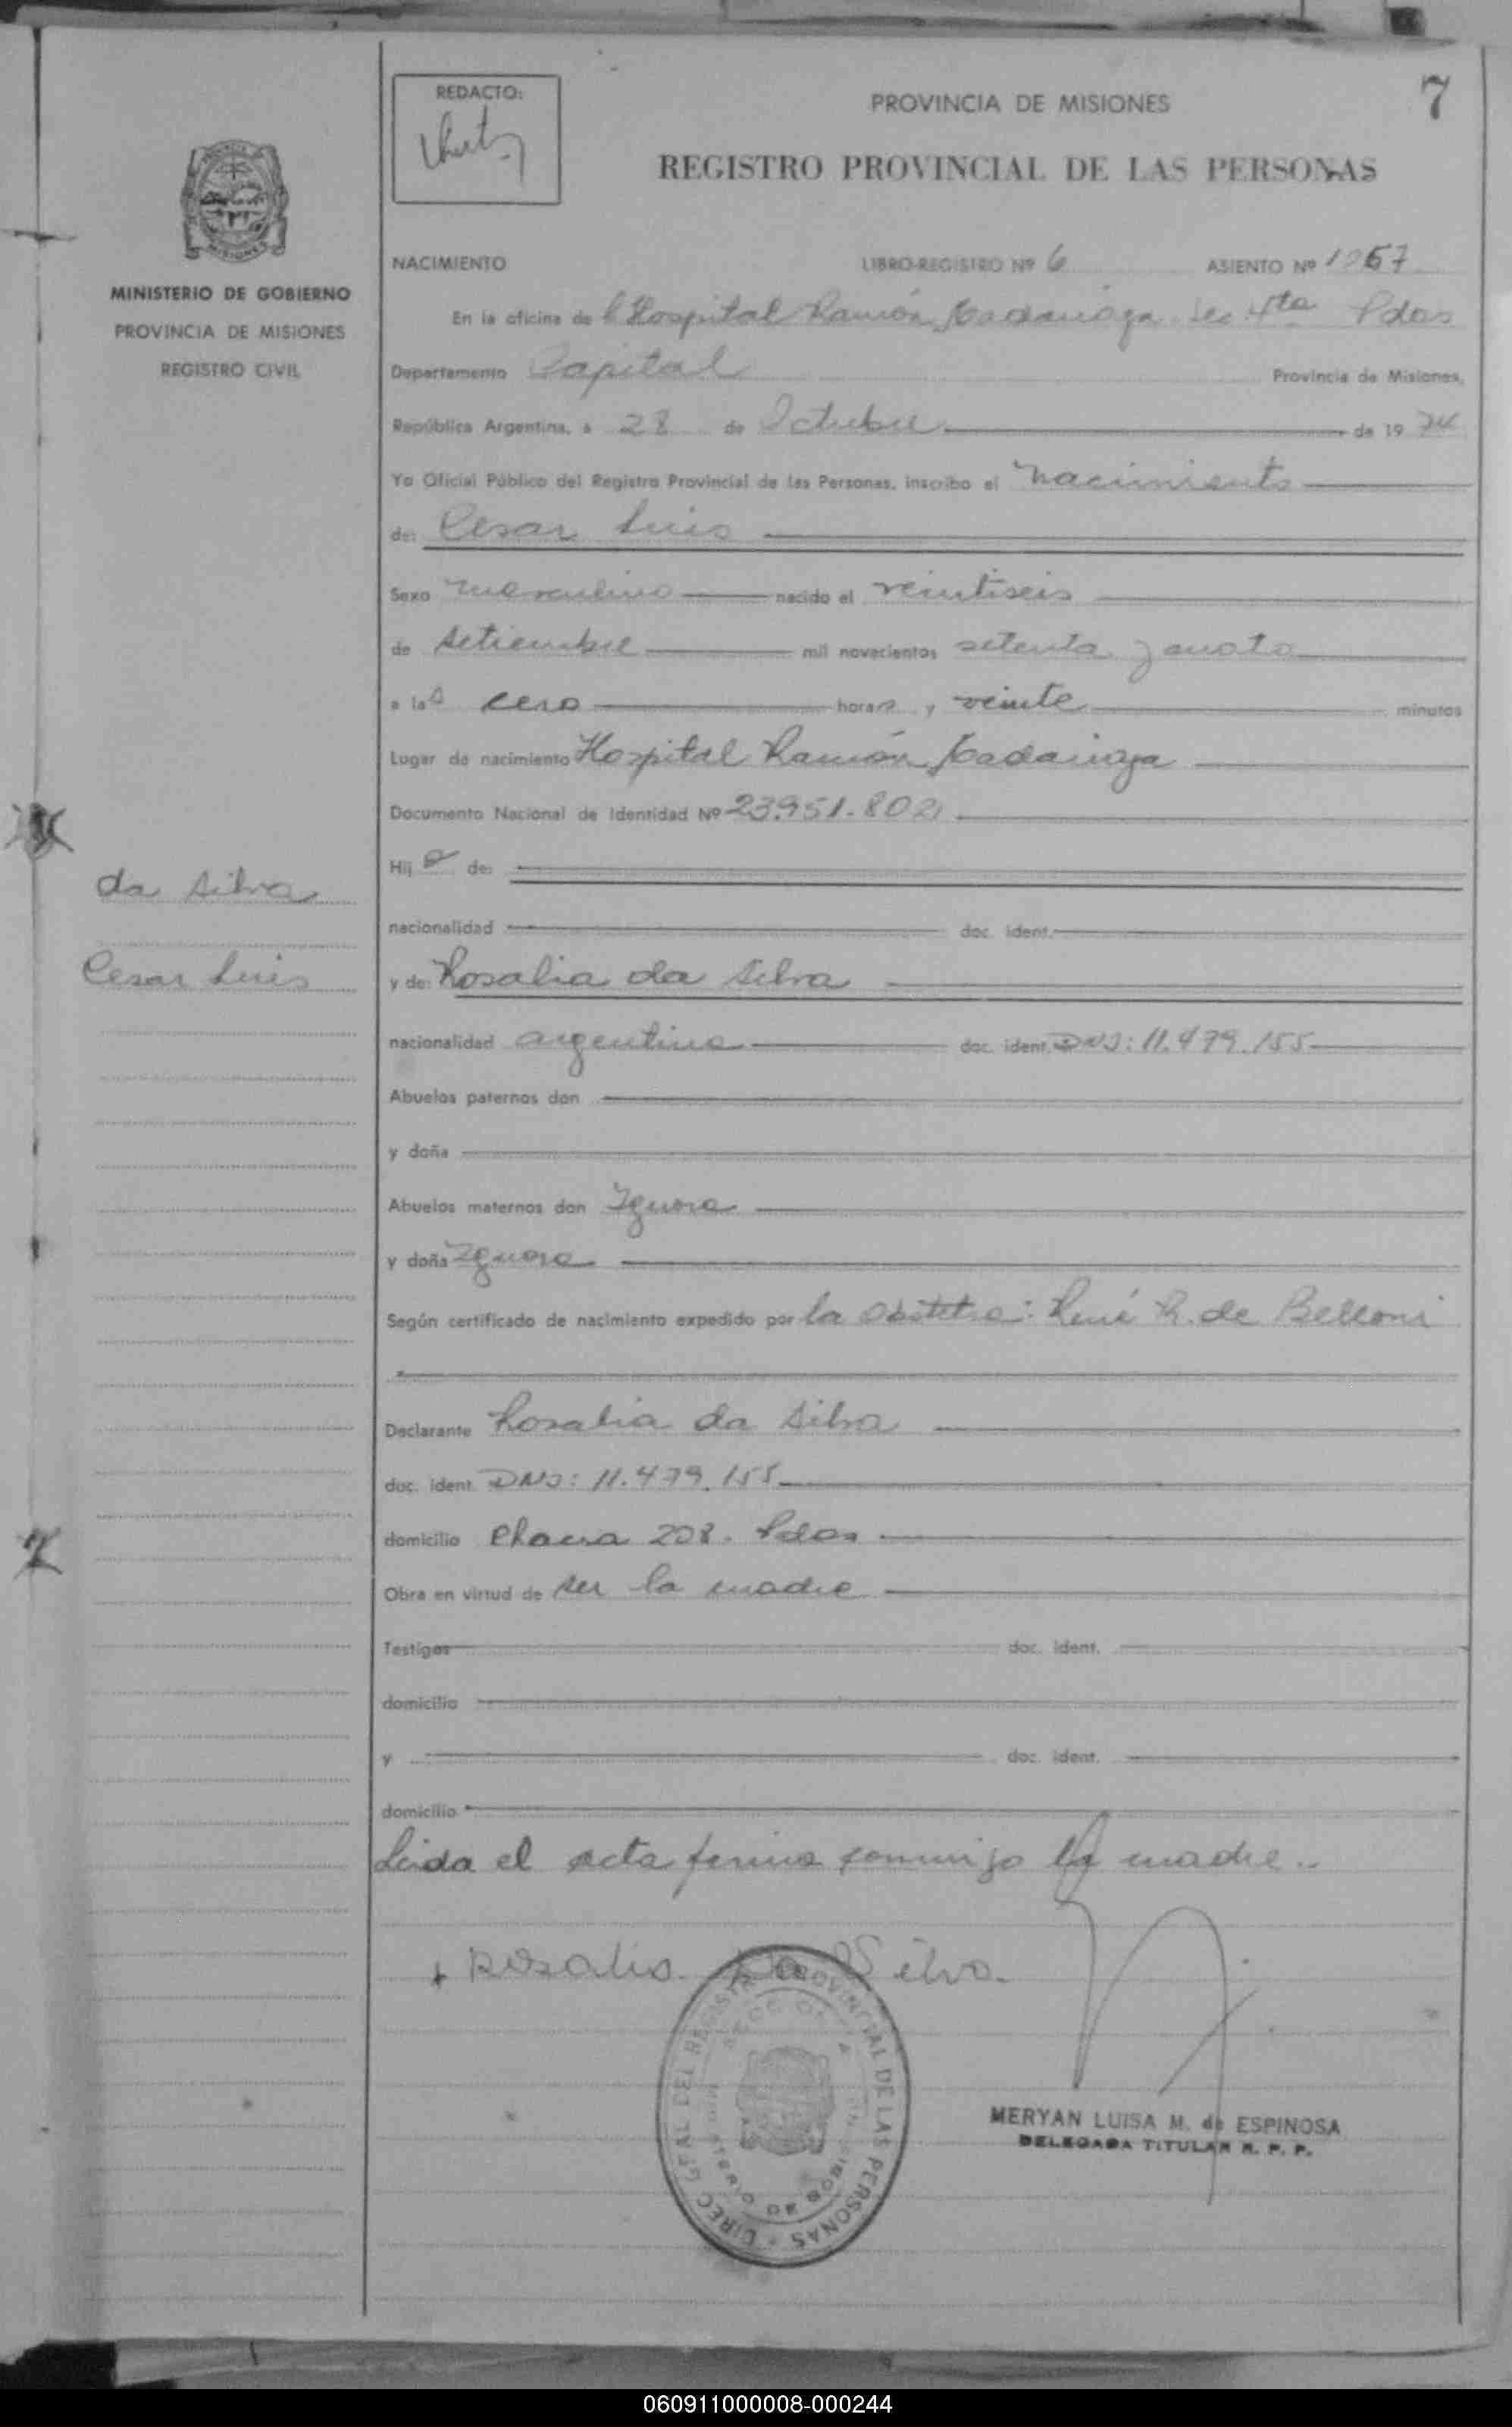 7
REDACTO:
PROVINCIA DE MISIONES
REGISTRO PROVINCIAL DE LAS PERSONAS
MISIONES
MINISTERIO DE GOBIERNO
PROVINCIA DE MISIONES
REGISTRO CIVIL
NACIMIENTO LIBRO-REGISTRO Nº 6 ASIENTO Nº 1067
En la oficina de Hospital Ramón Madariaga Sec 4ta Pdas
Departamento Capital Provincia de Misiones,
República Argentina, a 28 de Octubre de 1974
Yo Oficial Público del Registro Provincial de las Personas, inscribo el nacimiento
de: Cesar Luis
Sexo masculino nacido el veintiseis
de setiembre mil novecientos setenta y cuatro
a las cero horas y veinte minutos
Lugar de nacimiento Hospital Ramón Madariaga
Documento Nacional de Identidad Nº 23.951.802
Hijo de:
nacionalidad doc. ident.
y de: Rosalia da Silva
nacionalidad argentina doc. ident. DNI: 11.479.155
Abuelos paternos don
y doña
Abuelos maternos don Ignora
y doña Ignora
Según certificado de nacimiento expedido por la obstetra: René R. de Belloni
Declarante Rosalia da Silva
doc. ident. DNI: 11.479.155
domicilio Chacra 208. Pdas
Obra en virtud de ser la madre
Testigos doc. ident.
domicilio
y doc. ident.
domicilio
Leida el acta firma conmigo la madre.
da Silva
Cesar Luis
+ Rosalia Da Silva
DIREC. GRAL DEL REGISTRO PROVINCIAL DE LAS PERSONAS
MINISTERIO DE GOBIERNO
MERYAN LUISA M. de ESPINOSA
DELEGADA TITULAR R. P. P.
060911000008-000244